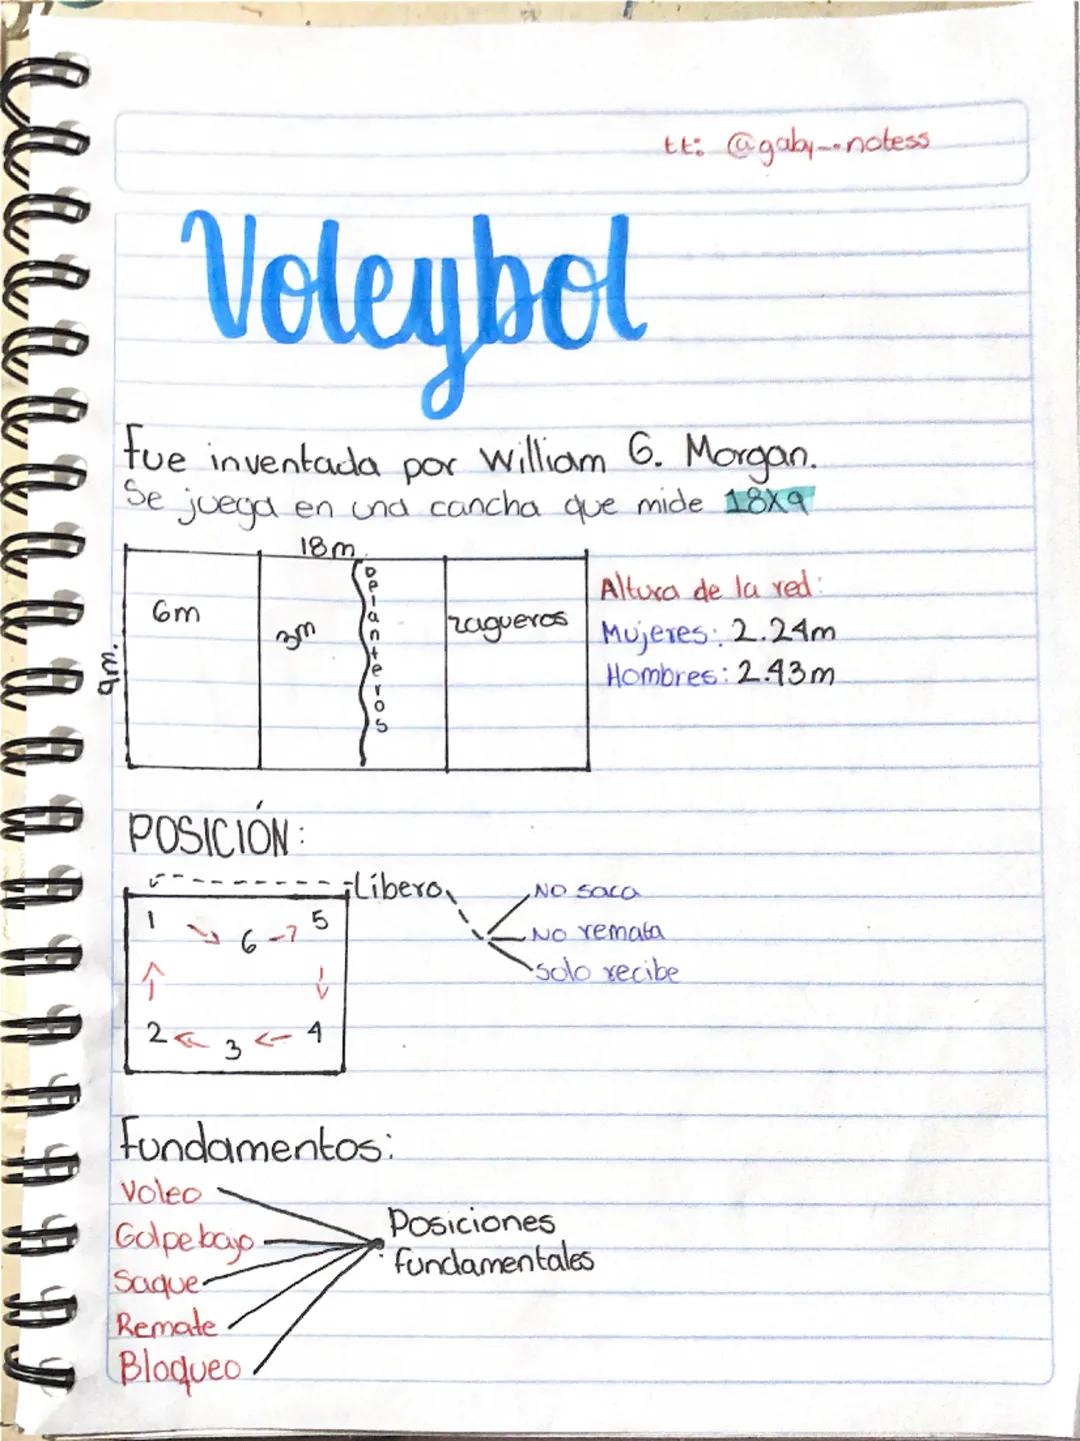 tt: @gaby--notess
Voleybol
Fue inventada por William G. Morgan.
Se juega en una cancha que mide 18x9
18m
6m
3m
Delanteros
zagueros
9m.
Altura de la red:
Mujeres: 2.24m
Hombres: 2.43m
POSICIÓN:
Líbero
No saca
No remata
Solo recibe
1 6 5
2 3 4
Fundamentos:
Voleo
Golpe bajo
Saque
Remate
Bloqueo
Posiciones
fundamentales